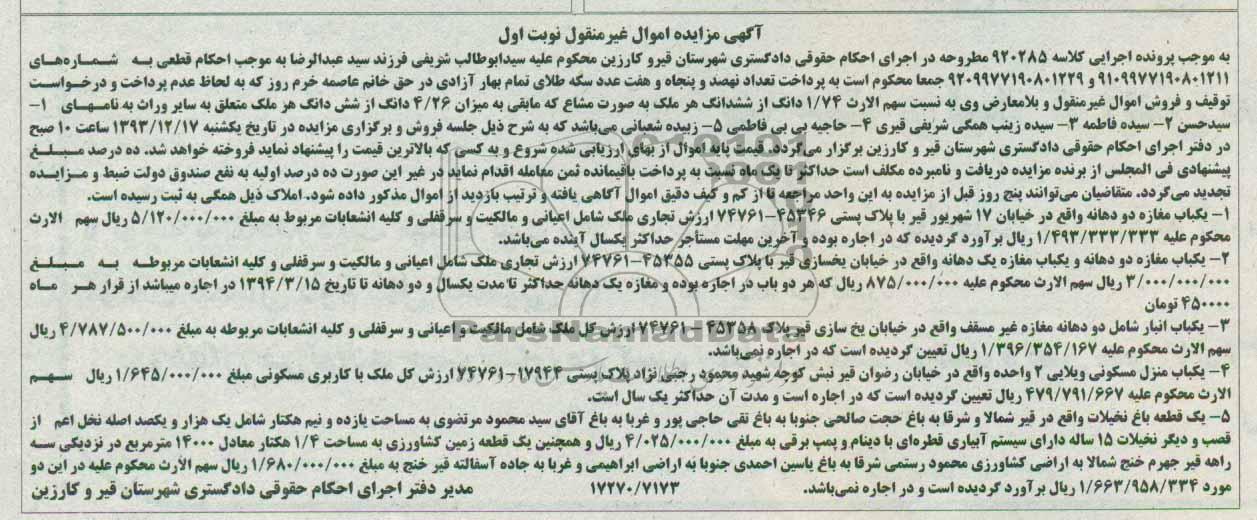 آگهی مزایده اموال غیرمنقول نوبت اول
به موجب پرونده اجرایی کلاسه ۹۲۰۲۸۵ مطروحه در اجرای احکام حقوقی دادگستری شهرستان قیرو کارزین محکوم علیه سیدابوطالب شریفی فرزند سید عبدالرضا به موجب احکام قطعی به شماره‌های
۹۱۰۹۹۷۷۱۹۰۸۰۱۲۱۱ و ۹۲۰۹۹۷۷۱۹۰۸۰۱۲۲۹ جمعا محکوم است به پرداخت تعداد نهصد و پنجاه و هفت عدد سکه طلای تمام بهار آزادی در حق خانم عاصمه خرم روز که به لحاظ عدم پرداخت و درخواست
توقیف و فروش اموال غیرمنقول و بلامعارض وی به نسبت سهم الارث ۱/۷۴ دانگ از ششدانگ هر ملک به صورت مشاع که مابقی به میزان ۴/۲۶ دانگ از شش دانگ هر ملک متعلق به سایر وراث به نامهای ۱-
سیدحسن ۲- سیده فاطمه ۳- سیده زینب همگی شریفی قیری ۴- حاجیه بی بی فاطمی ۵- زبیده شعبانی می‌باشد که به شرح ذیل جلسه فروش و برگزاری مزایده در تاریخ یکشنبه ۱۳۹۳/۱۲/۱۷ ساعت ۱۰ صبح
در دفتر اجرای احکام حقوقی دادگستری شهرستان قیر و کارزین برگزار می‌گردد. قیمت پایه اموال از بهای ارزیابی شده شروع و به کسی که بالاترین قیمت را پیشنهاد نماید فروخته خواهد شد. ده درصد مبلغ
پیشنهادی فی المجلس از برنده مزایده دریافت و نامبرده مکلف است حداکثر تا یک ماه نسبت به پرداخت باقیمانده ثمن معامله اقدام نماید در غیر این صورت ده درصد اولیه به نفع صندوق دولت ضبط و مزایده
تجدید می‌گردد. متقاضیان می‌توانند پنج روز قبل از مزایده به این واحد مراجعه تا از کم و کیف دقیق اموال آگاهی یافته و ترتیب بازدید از اموال مذکور داده شود. املاک ذیل همگی به ثبت رسیده است.
۱- یکباب مغازه دو دهانه واقع در خیابان ۱۷ شهریور قیر با پلاک پستی ۴۵۳۴۶-۷۴۷۶۱ ارزش تجاری ملک شامل اعیانی و مالکیت و سرقفلی و کلیه انشعابات مربوط به مبلغ ۵/۱۲۰/۰۰۰/۰۰۰ ریال سهم الارث
محکوم علیه ۱/۴۹۳/۳۳۳/۳۳۳ ریال برآورد گردیده که در اجاره بوده و آخرین مهلت مستأجر حداکثر یکسال آینده می‌باشد.
۲- یکباب مغازه دو دهانه و یکباب مغازه یک دهانه واقع در خیابان یخسازی قیر با پلاک پستی ۴۵۳۵۵-۷۴۷۶۱ ارزش تجاری ملک شامل اعیانی و مالکیت و سرقفلی و کلیه انشعابات مربوطه به مبلغ
۳/۰۰۰/۰۰۰/۰۰۰ ریال سهم الارث محکوم علیه ۸۷۵/۰۰۰/۰۰۰ ریال که هر دو باب در اجاره بوده و مغازه یک دهانه حداکثر تا مدت یکسال و دو دهانه تا تاریخ ۱۳۹۴/۳/۱۵ در اجاره میباشد از قرار هر ماه
۴۵۰۰۰۰ تومان
۳- یکباب انبار شامل دو دهانه مغازه غیر مسقف واقع در خیابان یخ سازی قیر پلاک ۴۵۳۵۸ - ۷۴۷۶۱ ارزش کل ملک شامل مالکیت و اعیانی و سرقفلی و کلیه انشعابات مربوطه به مبلغ ۴/۷۸۷/۵۰۰/۰۰۰ ریال
سهم الارث محکوم علیه ۱/۳۹۶/۳۵۴/۱۶۷ ریال تعیین گردیده است که در اجاره نمی‌باشد.
۴- یکباب منزل مسکونی ویلایی ۲ واحده واقع در خیابان رضوان قیر نبش کوچه شهید محمود رجبی نژاد پلاک پستی ۱۷۹۴۴-۷۴۷۶۱ ارزش کل ملک با کاربری مسکونی مبلغ ۱/۶۴۵/۰۰۰/۰۰۰ ریال سهم
الارث محکوم علیه ۴۷۹/۷۹۱/۶۶۷ ریال تعیین گردیده است که در اجاره است و مدت آن حداکثر یک سال است.
۵- یک قطعه باغ نخیلات واقع در قیر شمالا و شرقا به باغ حجت صالحی جنوبا به باغ تقی حاجی پور و غربا به باغ آقای سید محمود مرتضوی به مساحت یازده و نیم هکتار شامل یک هزار و یکصد اصله نخل اعم از
قصب و دیگر نخیلات ۱۵ ساله دارای سیستم آبیاری قطره‌ای با دینام و پمپ برقی به مبلغ ۴/۰۲۵/۰۰۰/۰۰۰ ریال و همچنین یک قطعه زمین کشاورزی به مساحت ۱/۴ هکتار معادل ۱۴۰۰۰ مترمربع در نزدیکی سه
راهه قیر جهرم خنج شمالا به اراضی کشاورزی محمود رستمی شرقا به باغ یاسین احمدی جنوبا به اراضی ابراهیمی و غربا به جاده آسفالته قیر خنج به مبلغ ۱/۶۸۰/۰۰۰/۰۰۰ ریال سهم الارث محکوم علیه در این دو
مورد ۱/۶۶۳/۹۵۸/۳۳۴ ریال برآورد گردیده است و در اجاره نمی‌باشد.
۱۷۲۷۰/۷۱۷۳
مدیر دفتر اجرای احکام حقوقی دادگستری شهرستان قیر و کارزین
ParsNamadData